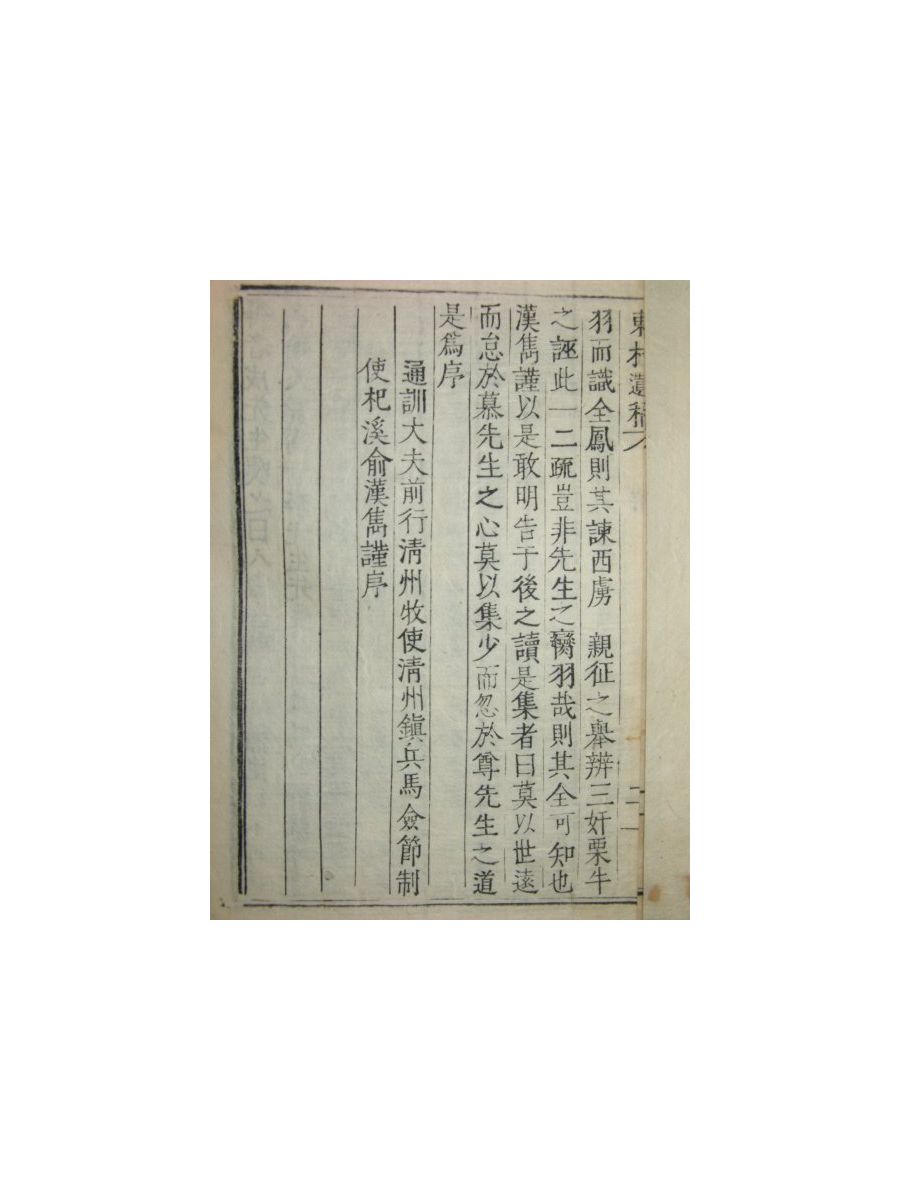 東村遺稿
羽而識全鳳則其諫西虜　親征之舉辨三奸栗牛
之誣此一二疏豈非先生之臠羽哉則其全可知也
漢雋謹以是敢明告于後之讀是集者曰莫以世遠
而怠於慕先生之心莫以集少而忽於尊先生之道
是爲序
通訓大夫前行清州牧使清州鎭兵馬僉節制
使杞溪俞漢雋謹序